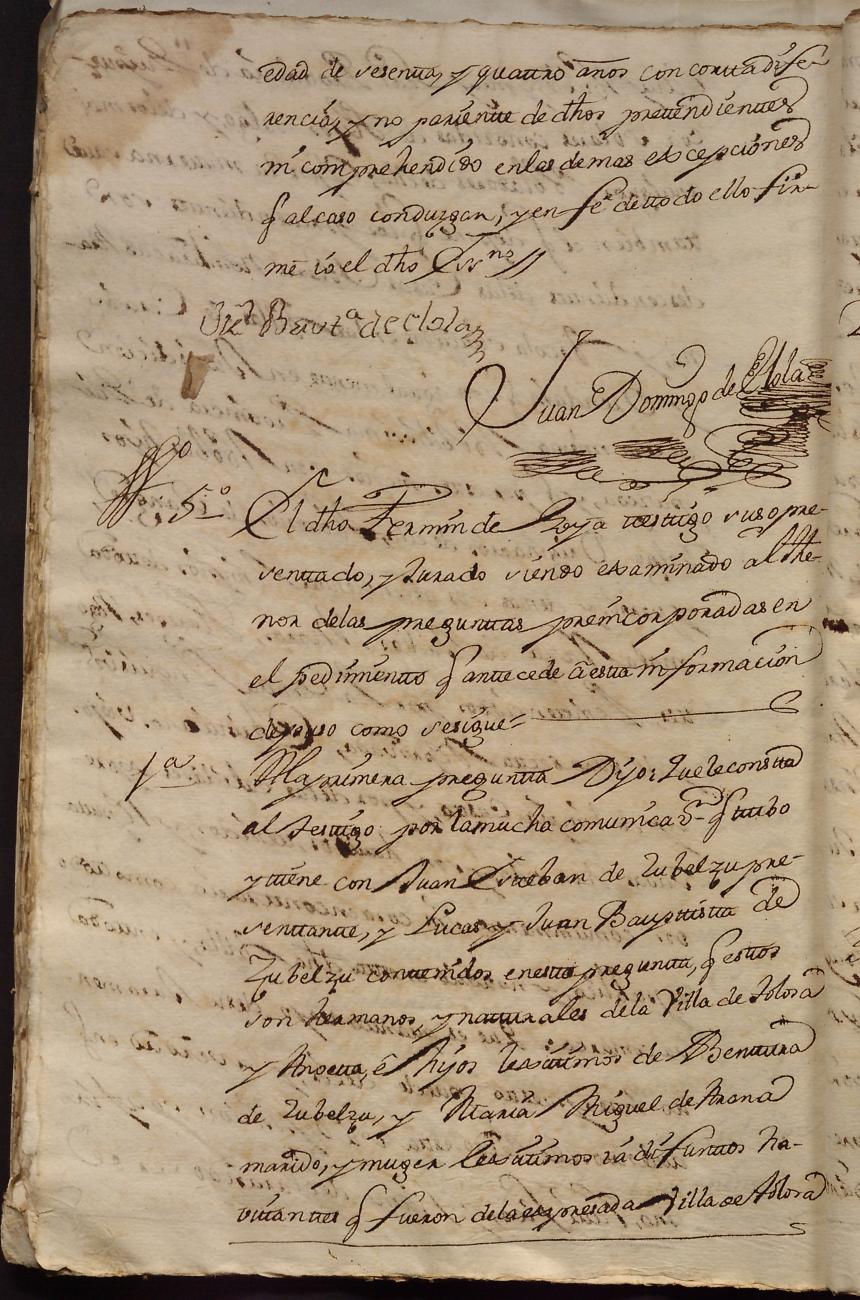 edad de sesenta, y quattro años con corta dife-
rencia, y no pariente de dhos pretendientes
ni comprehendido en las demas excepciones
q̃ al caso conduzgan, y en fee de todo ello fir-
me io el dho Essno //
Bautª de Elola
Juan Domingo de Elola
tº 5º El dho Fermin de Goya testigo suso pre-
sentado, y Jurado siendo examinado al the-
nor delas preguntas preincorporadas en
el pedimento q̃ antecede a esta informacion
depuso como se sigue=
1ª A la primera pregunta Dijo: Que le consta
al testigo por la mucha comunicaon q̃ tubo
y tiene con Juan Esteban de Zubelzu pre-
sentante, y Lucas y Juan Bauptista de
Zubelzu contenidos en esta pregunta, q̃ estos
son hermanos, y naturales dela Villa de Tolosa
y Anoeta, é hijos lexitimos de Bentura
de Zubelzu, y Maria Miguel de Arana
marido, y muger lexitimos ia difuntos ha-
vitantes q̃ fueron dela expresada Villa de Tolosa